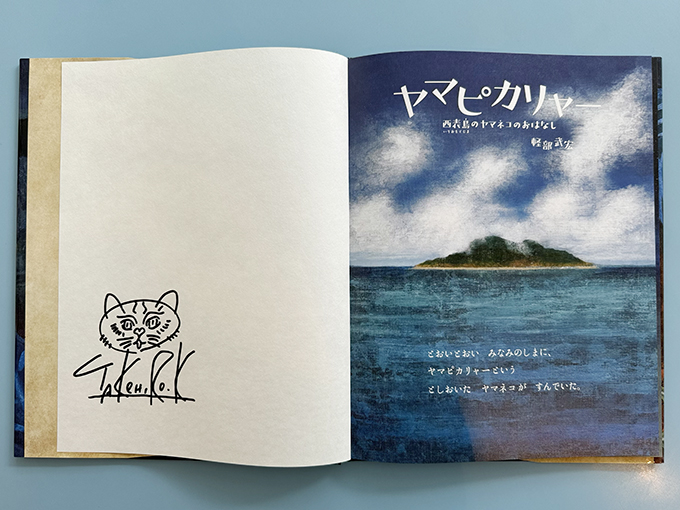 TAKEHiRO.K
ヤマピカリャー
西表島のヤマネコのおはなし
いりおもてじま
軽部武宏
とおいとおい　みなみのしまに、
ヤマピカリャーという
としおいた　ヤマネコが　すんでいた。